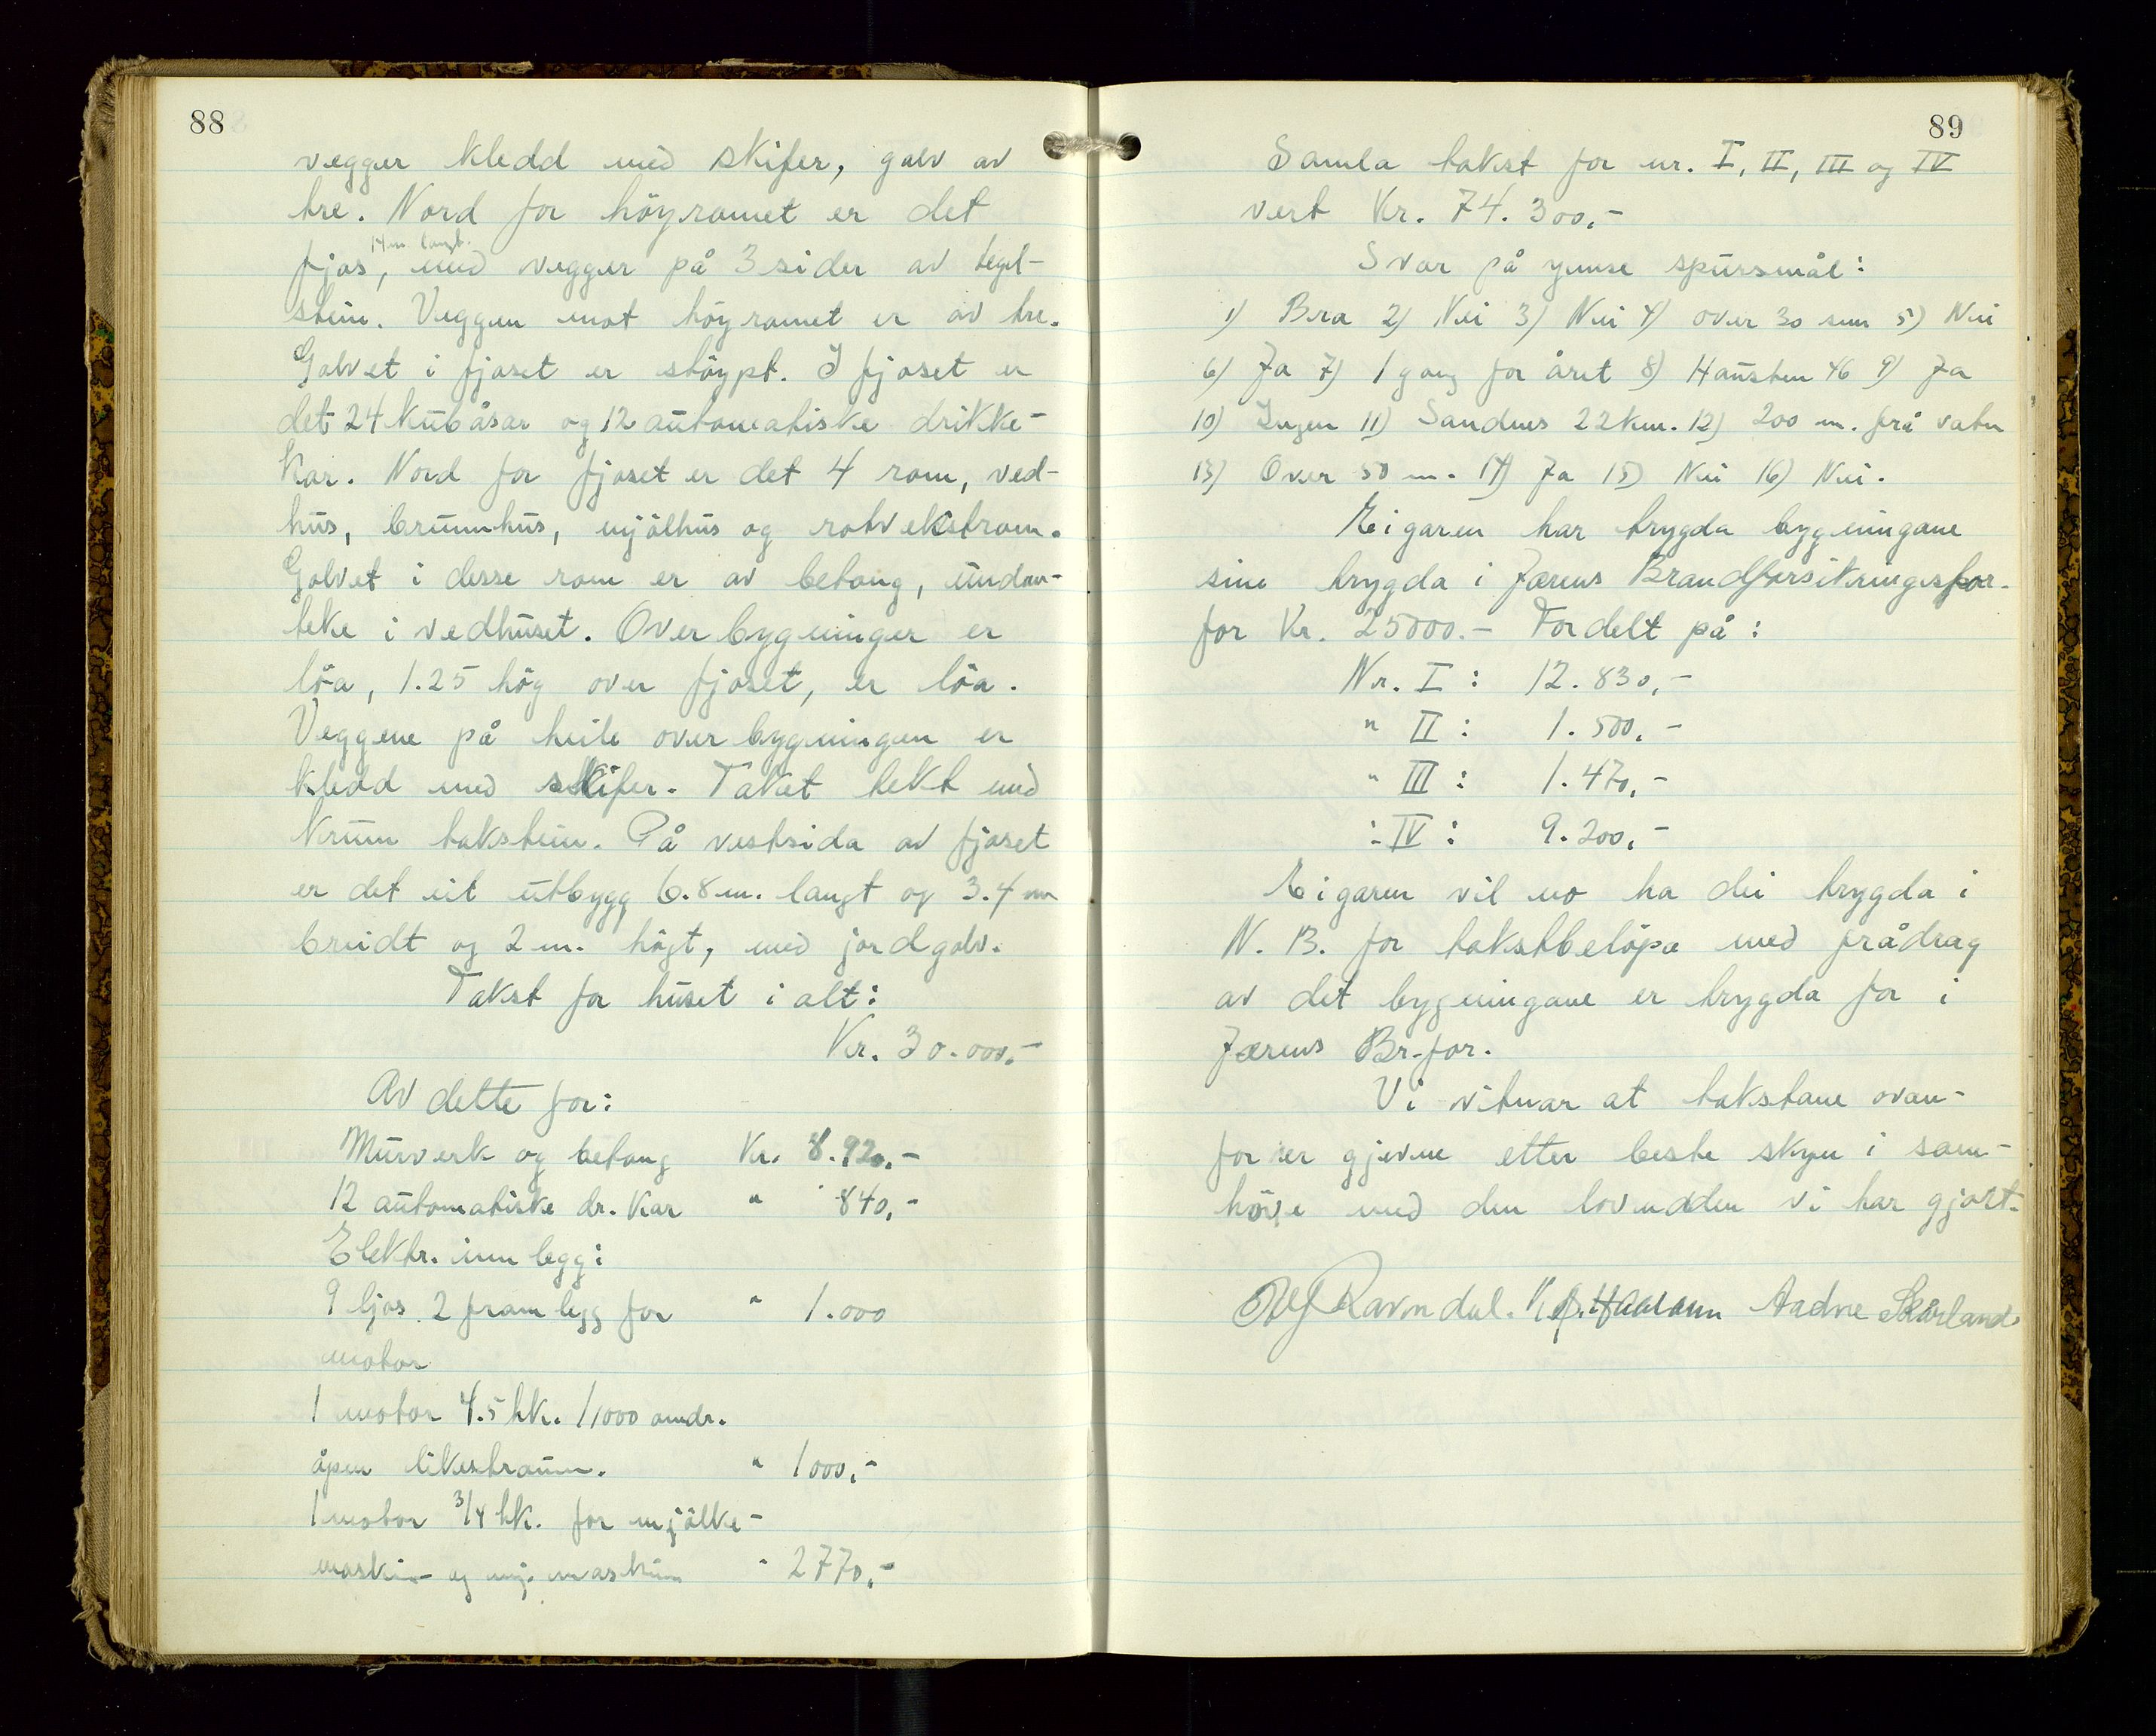 88
vegger kledd med skifer, golv av
tre. Nord for höyromet er det
14 m. langt.
fjos, med vegger på 3 sider av tegl-
stein. Veggen mot höyromet er av tre.
Golvet i fjoset er stöypt. I fjoset er
det 24 kubåsar og 12 automatiske drikke-
kar. Nord for fjoset er det 4 rom, ved-
hus, brunnhus, mjölhus og rotvekstrom.
Golvet i desse rom er av betong, undan-
teke i vedhuset. Overbygninger er
löa, 1.25 hög over fjoset, er löa.
Veggene på heile overbygningen er
kledd med skifer. Taket tekt med
krum takstein. På vestsida av fjoset
er det eit utbygg 6.8 m. langt og 3.4 m
breidt og 2 m. högt, med jordgolv.
Takst for huset i alt:
Kr. 30.000.-
Av dette for:
Murverk og betong Kr. 8.920.-
12 automatiske dr. kar " 840.-
Elektr. innlegg:
9 ljos 2 framlegg for " 1.000
motor
1 motor 4.5 hk. 1000 omdr.
åpen likestraum. " 1000.-
1 motor 3/4 hk. for mjölke-
maskin og mj. maskin " 2770.-
89
Samla takst for nr. I, II, III og IV
vert Kr. 74.300.-
Svar på ymse spursmål:
1) Bra 2) Nei 3) Nei 4) over 30 sm 5) Nei
6) Ja 7) 1 gong for året 8) Hausten 46 9) Ja
10) Ingen 11) Sandnes 22 km. 12) 200 m. frå vatn
13) Over 50 m. 14) Ja 15) Nei 16) Nei.
Eigaren har trygda bygningane
sine trygda i Jærens Brandforsikringsfor-
for Kr. 25000.- Fordelt på:
Nr. I : 12.830.-
" II : 1.500.-
" III : 1.470.-
" IV : 9.200.-
Eigaren vil no ha dei trygda i
N. B. for takstbelöpa med frådrag
av det bygningane er trygda for i
Jærens Br.-for.
Vi vitnar at takstane ovan-
for er gjevne etter beste skyn i sam-
höve med den lovnaden vi har gjort.
Ravndal. Aadne Skårland